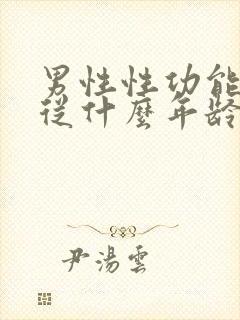 男性性功能
從什麼年齡
尹湯雲